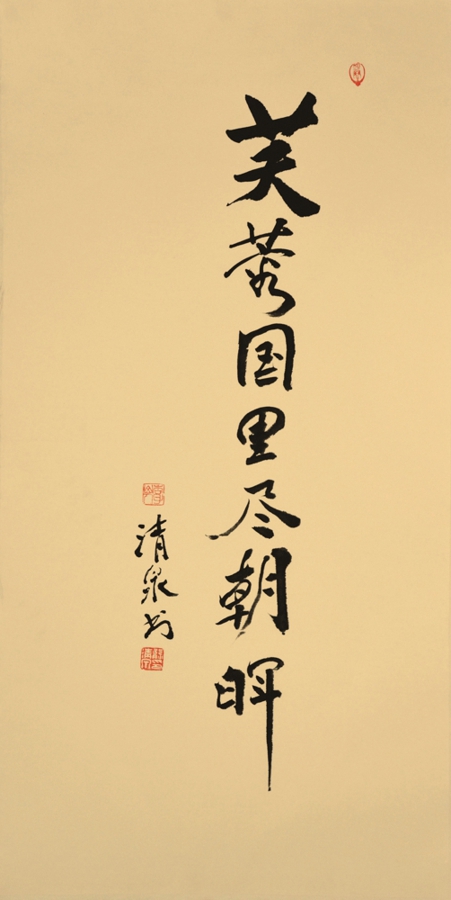 芙蓉国里尽朝晖
清泉书